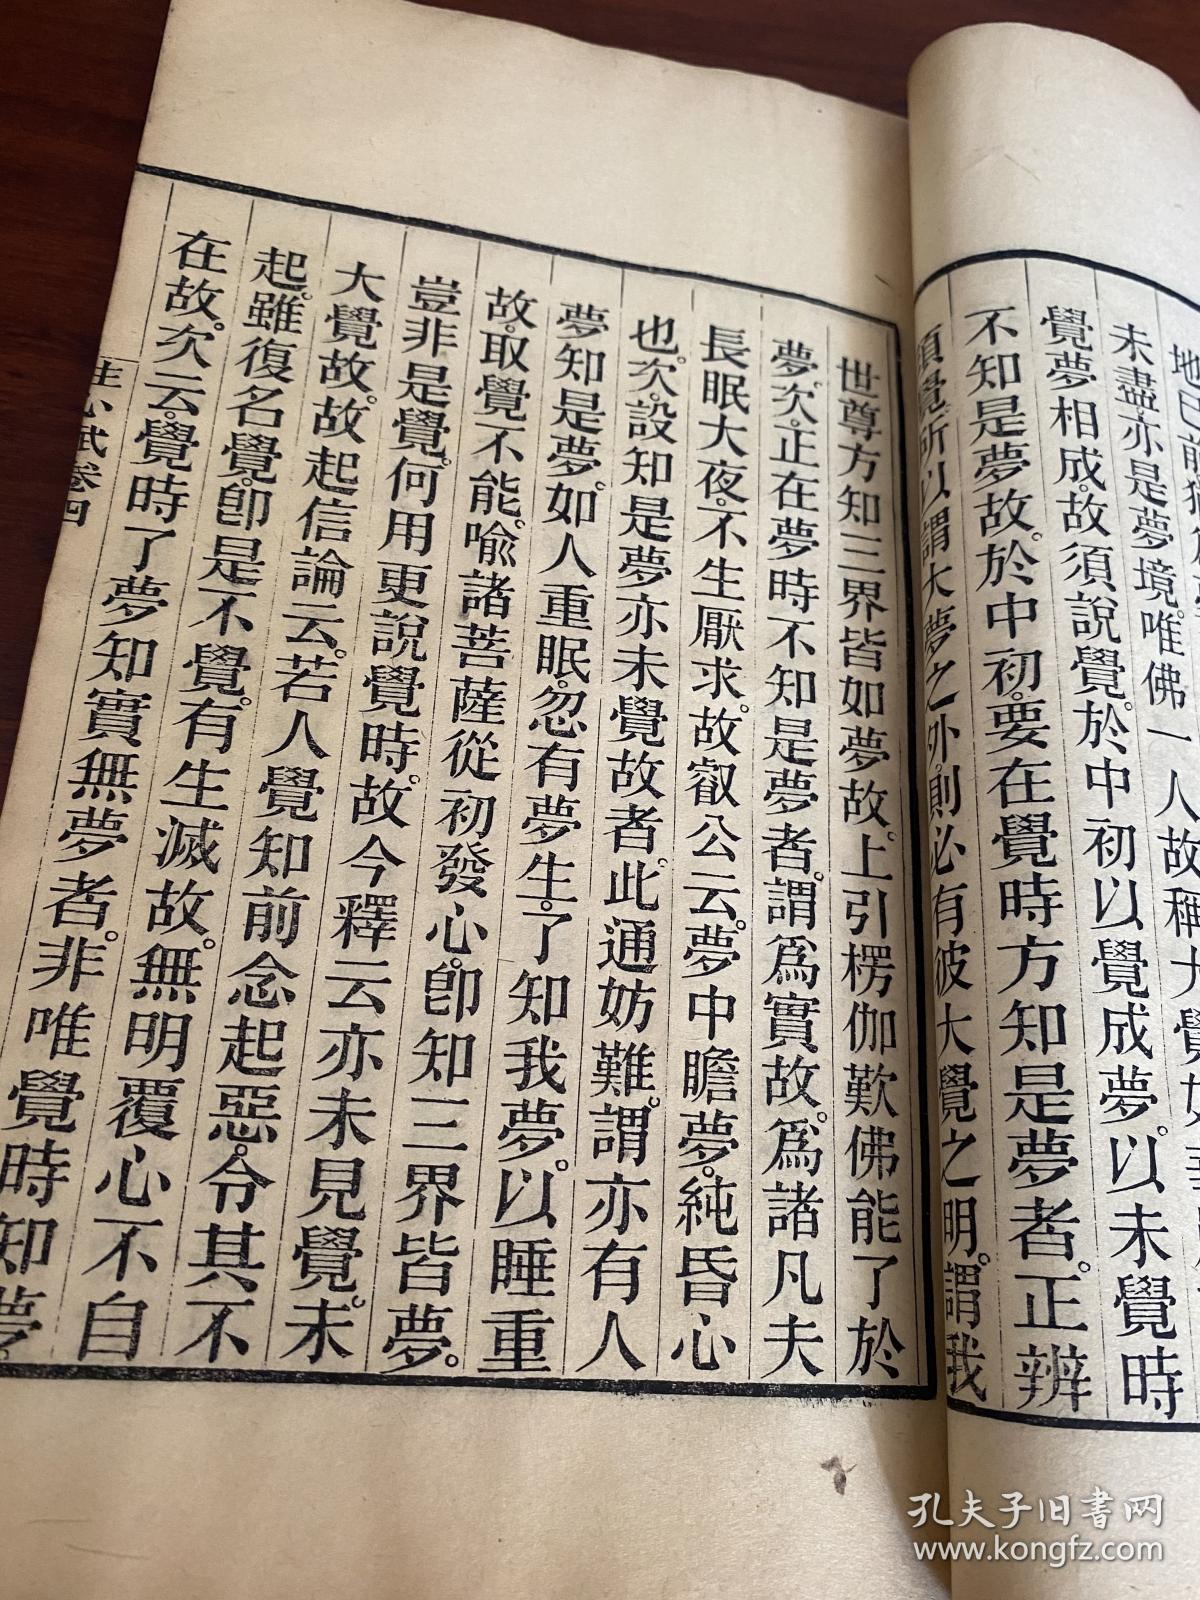 未盡亦是夢境。唯佛一人故稱大覺
覺夢相成。故須說覺。於中初以覺成夢。以未覺時
不知是夢故。於中初。要在覺時方知是夢者。正辨
須覺所以。謂大夢之外。則必有彼大覺之明。謂我
世尊方知三界皆如夢故。上引楞伽歎佛能了於
夢。次。正在夢時不知是夢者。謂爲實故。爲諸凡夫
長眠大夜。不生厭求。故叡公云。夢中瞻夢。純昏心
也。次。設知是夢亦未覺故者。此通妨難。謂亦有人
夢知是夢。如人重眠。忽有夢生。了知我夢。以睡重
故。取覺不能。喻諸菩薩從初發心。卽知三界皆夢。
豈非是覺。何用更說覺時。故今釋云亦未見覺。未
大覺故。故起信論云。若人覺知前念起惡。令其不
起。雖復名覺。卽是不覺。有生滅故。無明覆心不自
在故。次云。覺時了夢知實無夢者。非唯覺時知夢。
卷四
孔夫子旧书网
www.kongfz.com